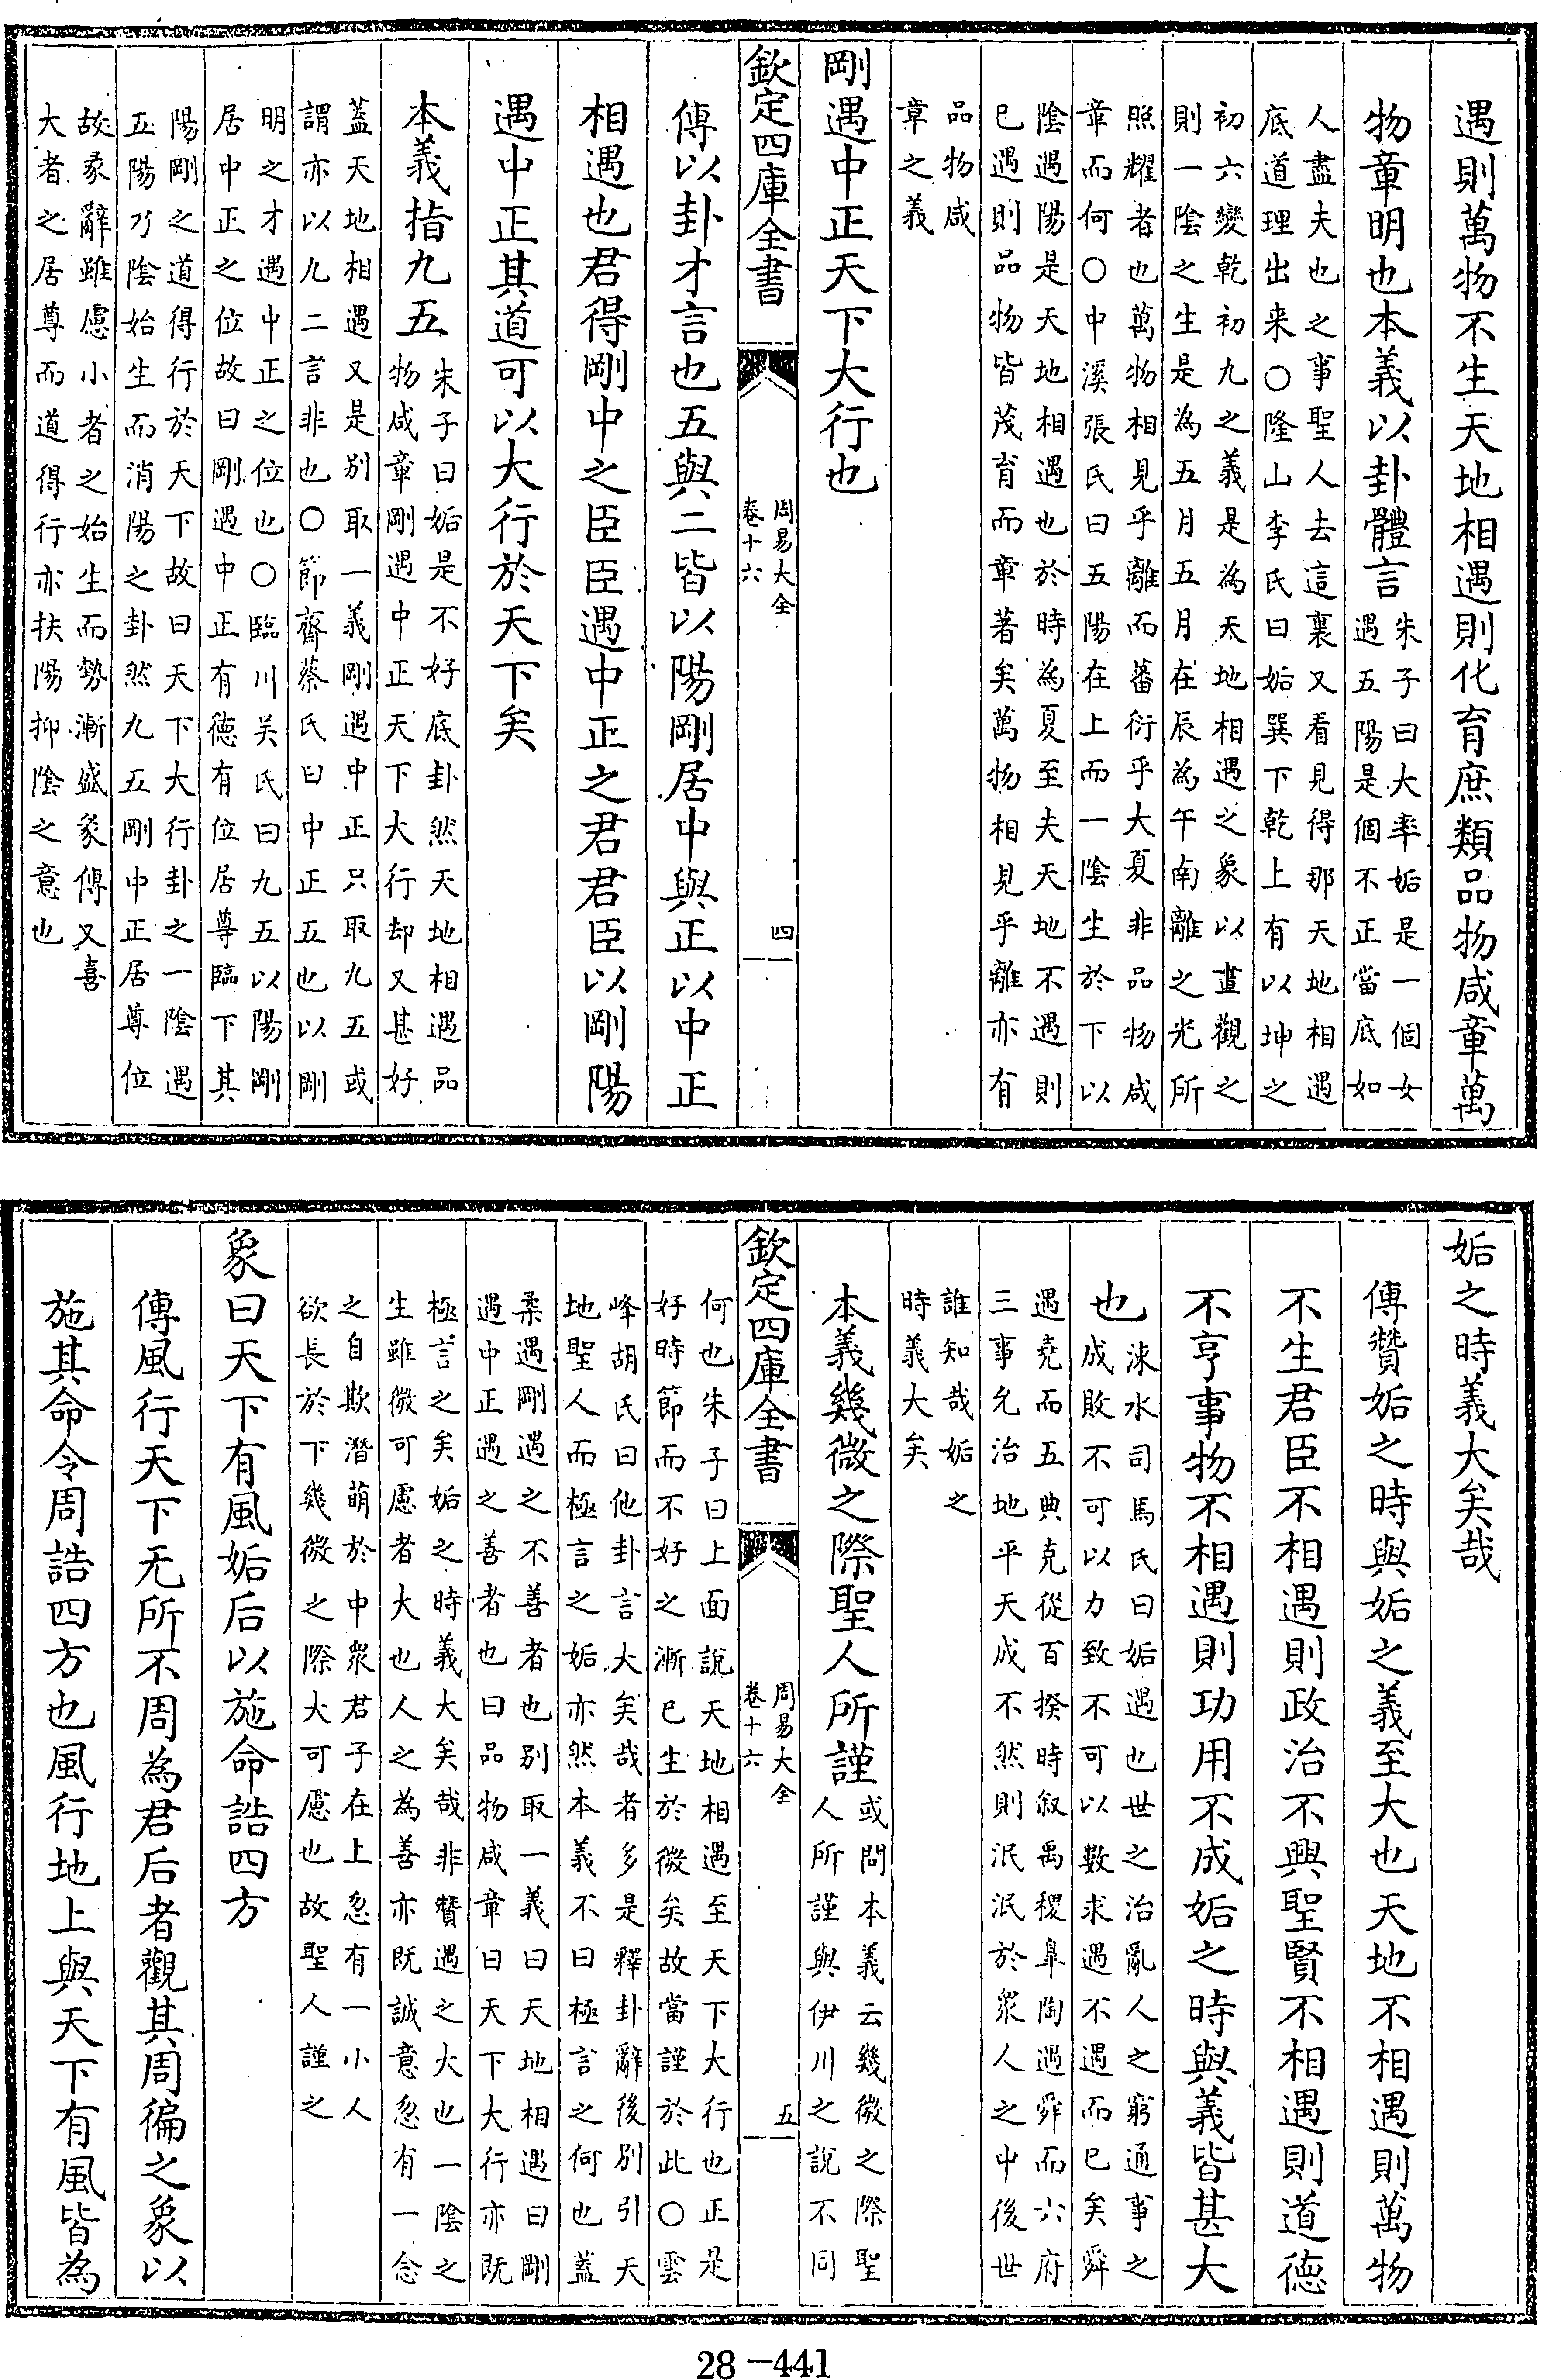 遇則萬物不生天地相遇則化育庶類品物咸章萬
物章明也本義以卦體言
朱子曰大率姤是一個女
遇五陽是個不正當底如
人盡夫也之事聖人去這裏又看見得那天地相遇
底道理出来○隆山李氏曰姤巽下乾上有以坤之
初六變乾初九之義是為天地相遇之象以畫觀之
則一陰之生是為五月五月在辰為午南離之光所
照耀者也萬物相見乎離而蕃衍乎大夏非品物咸
章而何○中溪張氏曰五陽在上而一陰生於下以
陰遇陽是天地相遇也於時為夏至夫天地不遇則
巳遇則品物皆茂育而章著矣萬物相見乎離亦有
品物咸
章之義
剛遇中正天下大行也
欽定四庫全書
周易大全
卷十六
四
傳以卦才言也五與二皆以陽剛居中與正以中正
相遇也君得剛中之臣臣遇中正之君君臣以剛陽
遇中正其道可以大行於天下矣
本義指九五
朱子曰姤是不好底卦然天地相遇品
物咸章剛遇中正天下大行却又甚好
蓋天地相遇又是别取一義剛遇中正只取九五或
謂亦以九二言非也○節齋蔡氏曰中正五也以剛
明之才遇中正之位也○臨川吴氏曰九五以陽剛
居中正之位故曰剛遇中正有德有位居尊臨下其
陽剛之道得行於天下故曰天下大行卦之一陰遇
五陽乃陰始生而消陽之卦然九五剛中正居尊位
故彖辭雖慮小者之始生而勢漸盛彖傳又喜
大者之居尊而道得行亦扶陽抑陰之意也
姤之時義大矣哉
傳贊姤之時與姤之義至大也天地不相遇則萬物
不生君臣不相遇則政治不興聖賢不相遇則道德
不亨事物不相遇則功用不成姤之時與義皆甚大
也
涑水司馬氏曰姤遇也世之治亂人之窮通事之
成敗不可以力致不可以數求遇不遇而已矣舜
遇堯而五典克從百揆時叙禹稷臯陶遇舜而六府
三事允治地平天成不然則泯泯於衆人之中後世
誰知哉姤之
時義大矣
本義幾微之際聖人所謹
或問本義云幾微之際聖
人所謹與伊川之說不同
欽定四庫全書
周易大全
卷十六
五
何也朱子曰上面說天地相遇至天下大行也正是
好時節而不好之漸已生於微矣故當謹於此○雲
峰胡氏曰他卦言大矣哉者多是釋卦辭後别引天
地聖人而極言之姤亦然本義不曰極言之何也蓋
柔遇剛遇之不善者也别取一義曰天地相遇曰剛
遇中正遇之善者也曰品物咸章曰天下大行亦既
極言之矣姤之時義大矣哉非贊遇之大也一陰之
生雖微可慮者大也人之為善亦既誠意忽有一念
之自欺潛萌於中衆君子在上忽有一小人
欲長於下幾微之際大可慮也故聖人謹之
象曰天下有風姤后以施命誥四方
傳風行天下无所不周為君后者觀其周徧之象以
施其命令周誥四方也風行地上與天下有風皆為
28-441